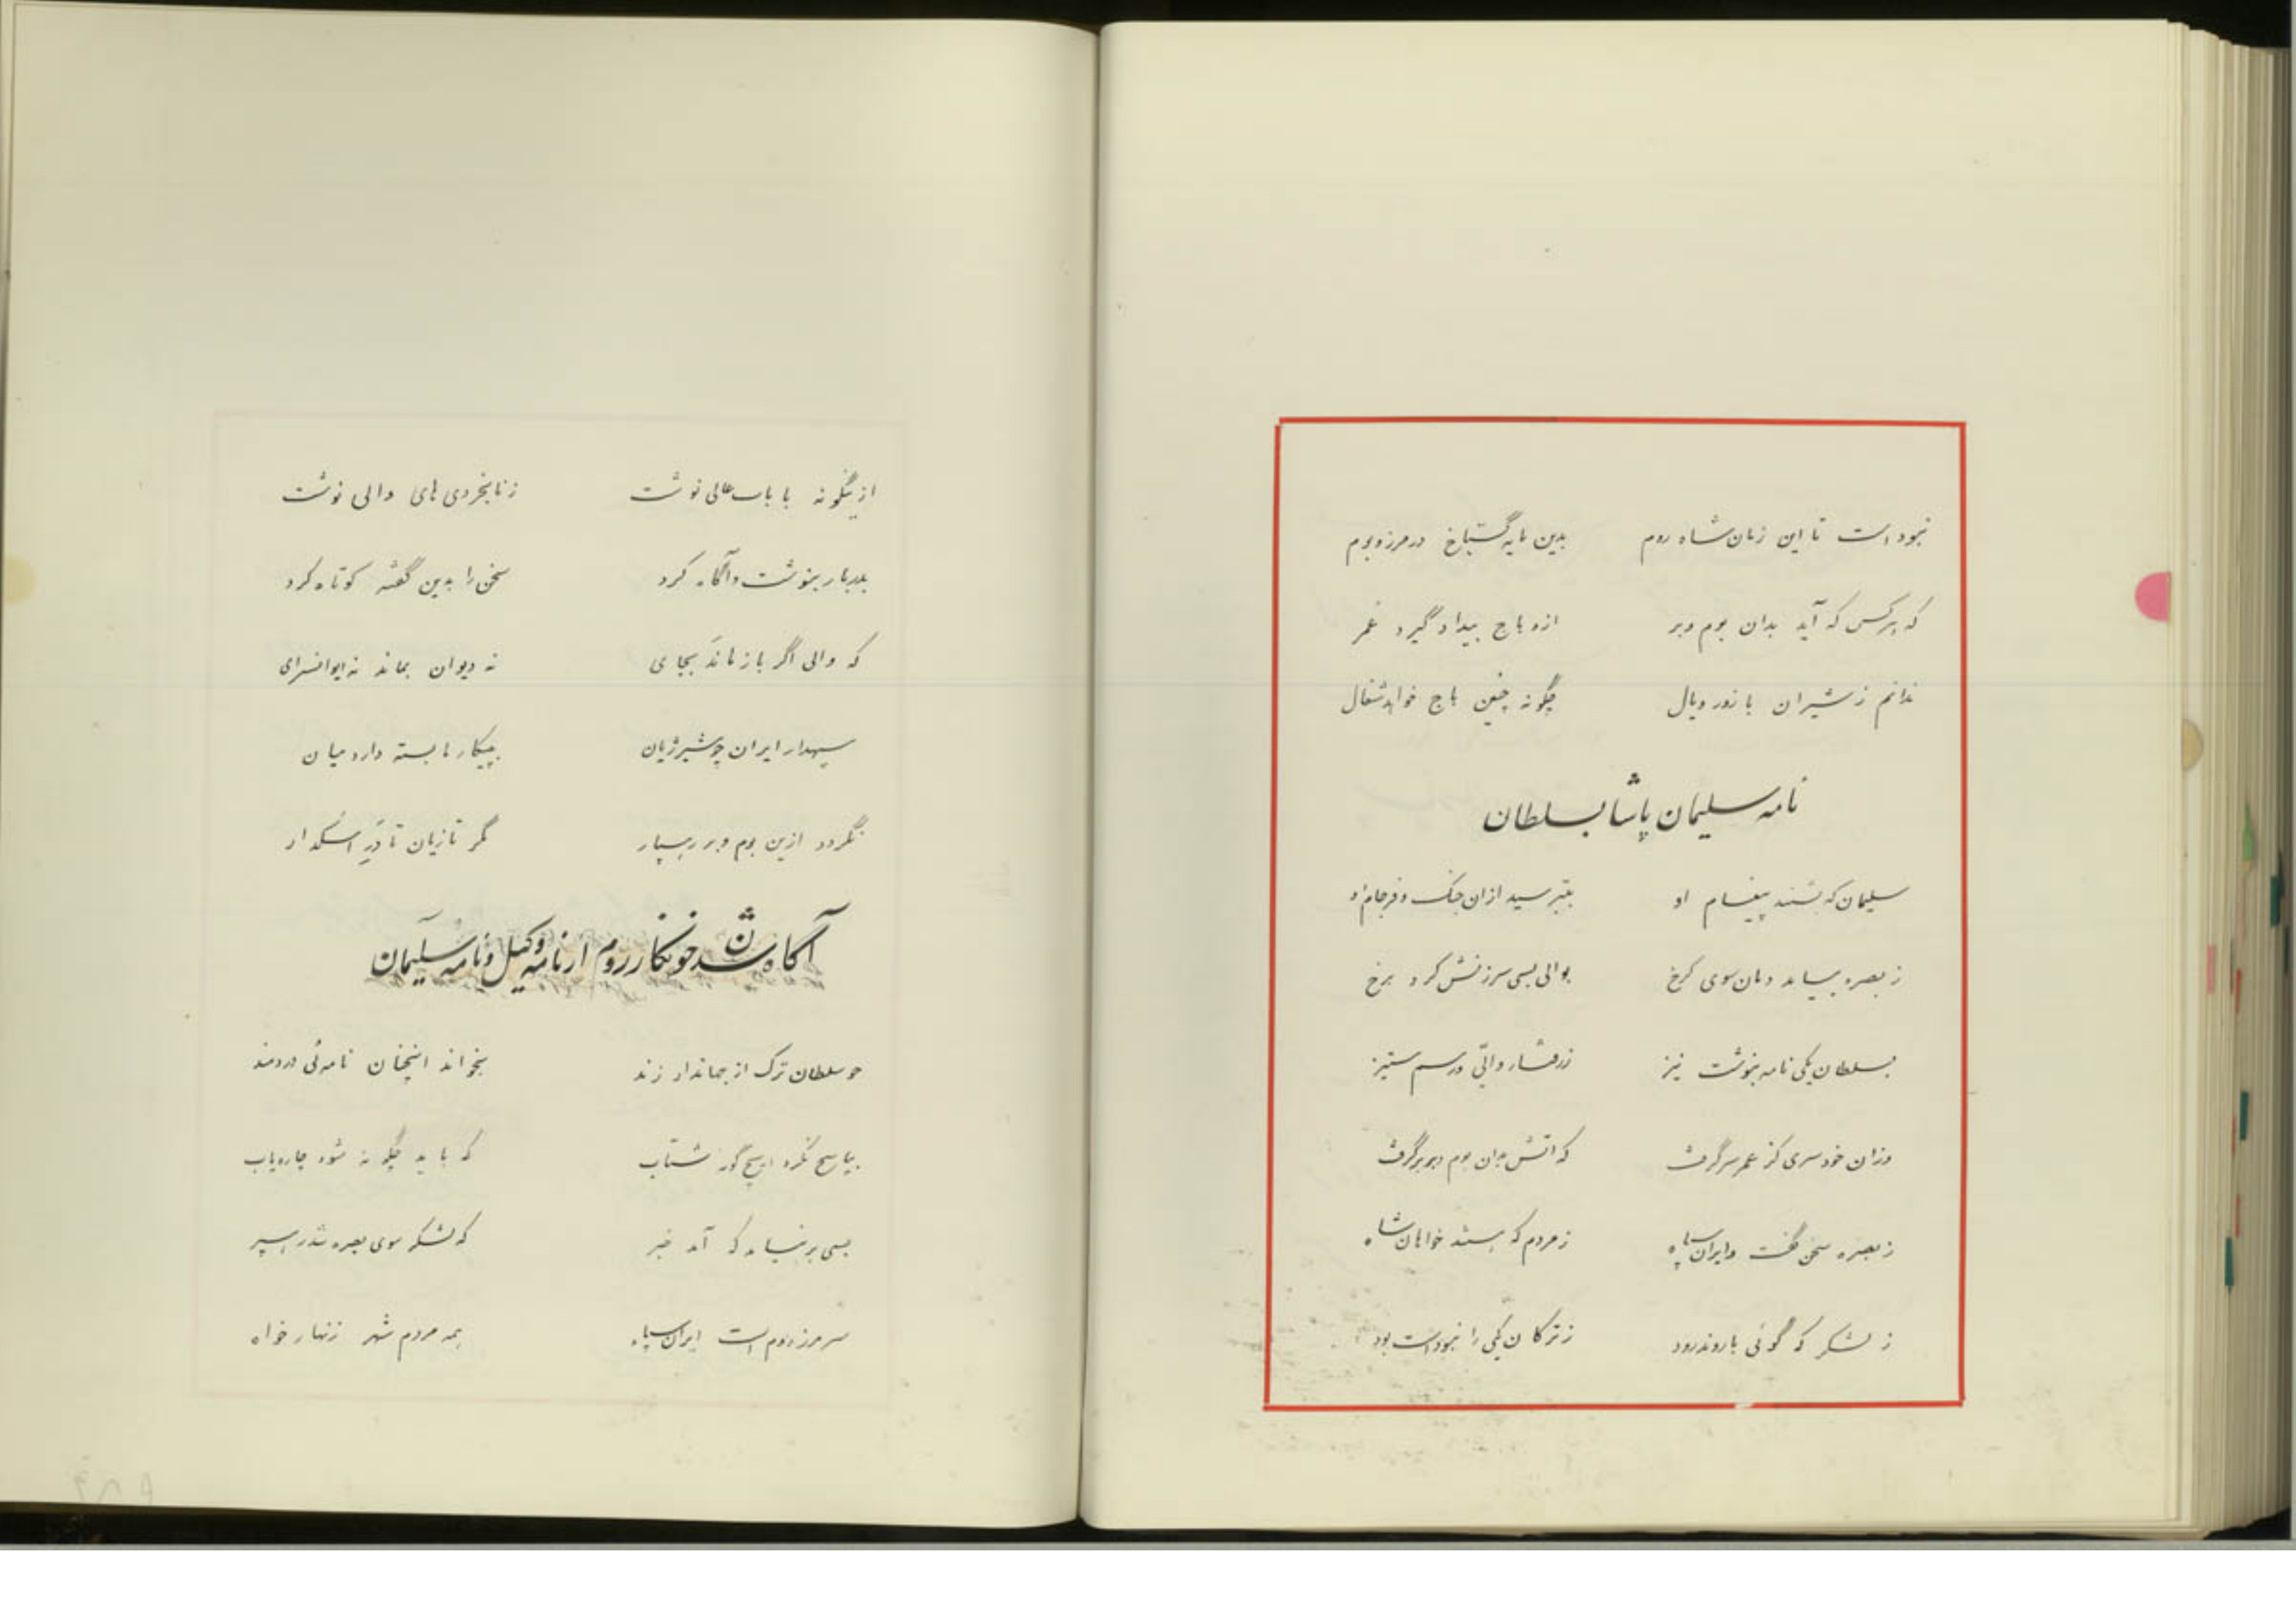 نبود است تا این زمان شاه روم بدین مایه گستاخ در مرز و بوم
که هرکس که آید بدان بوم و بر ازو باج بیداد گیرد عمر
ندانم ز شیران با زور و یال چگونه چنین باج خواهد شغال
نامه سلیمان پاشا بسلطان
سلیمان که بشنید پیغام او بترسید از ان جنگ و فرجام او
ز بصره بیامد دمان سوی کرخ بوالی بسی سرزنش کرد برخ
بسلطان یکی نامه بنوشت نیز ز رفتار والی و رسم ستیز
وزان خودسری کز عمر سر گرفت که اتش بران بوم و بر برگرفت
ز بصره سخن گفت و ایران سپاه ز مردم که هستند خواهان شاه
ز لشکر که گوئی باروند رود ز ترکان یکی را نبود است بود
ازینگونه با باب عالی نوشت ز نابخردی های والی نوشت
بدربار بنوشت و آگاه کرد سخن را بدین گفته کوتاه کرد
که والی اگر باز ماند بجای نه دیوان بماند نه ایوانسرای
سپهدار ایران چو شیر ژیان بپیکار ما بسته دارد میان
نگردد ازین بوم و بر رهسپار مگر تازیان تا در اسکدار
آگاه شدن خونکار روم از نامه وکیل و نامه سلیمان
چو سلطان ترک از جهاندار زند بخواند انچنان نامه‌ئی دردمند
بپاسخ نکرد ایچ گونه شتاب که باید چگونه شود چاره یاب
بسی برنیامد که آمد خبر که لشکر سوی بصره شد رهسپر
سر مرز روم است ایران سپاه همه مردم شهر زنهار خواه